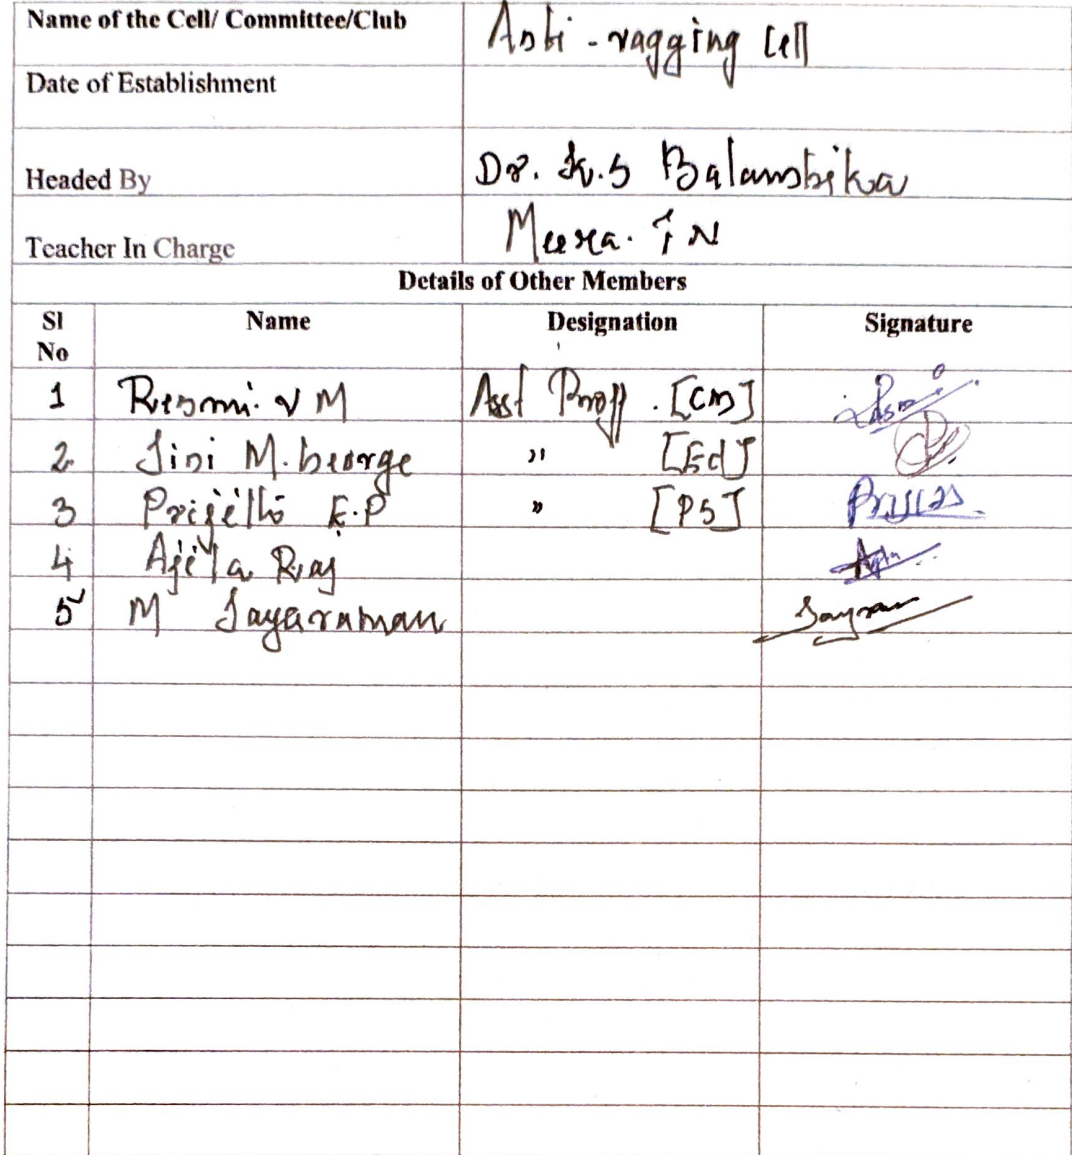 Name of the Cell/ Committee/Club Anti-ragging Cell
Date of Establishment
Headed By Dr. K.S Balambika
Teacher In Charge Meera. T N
Details of Other Members
Sl No Name Designation Signature
1 Resmi. V M Asst Proff. [CM]
2 Jini M. George " [Ed]
3 E.P " [PS]
4 Raj
5 M Jayaraman